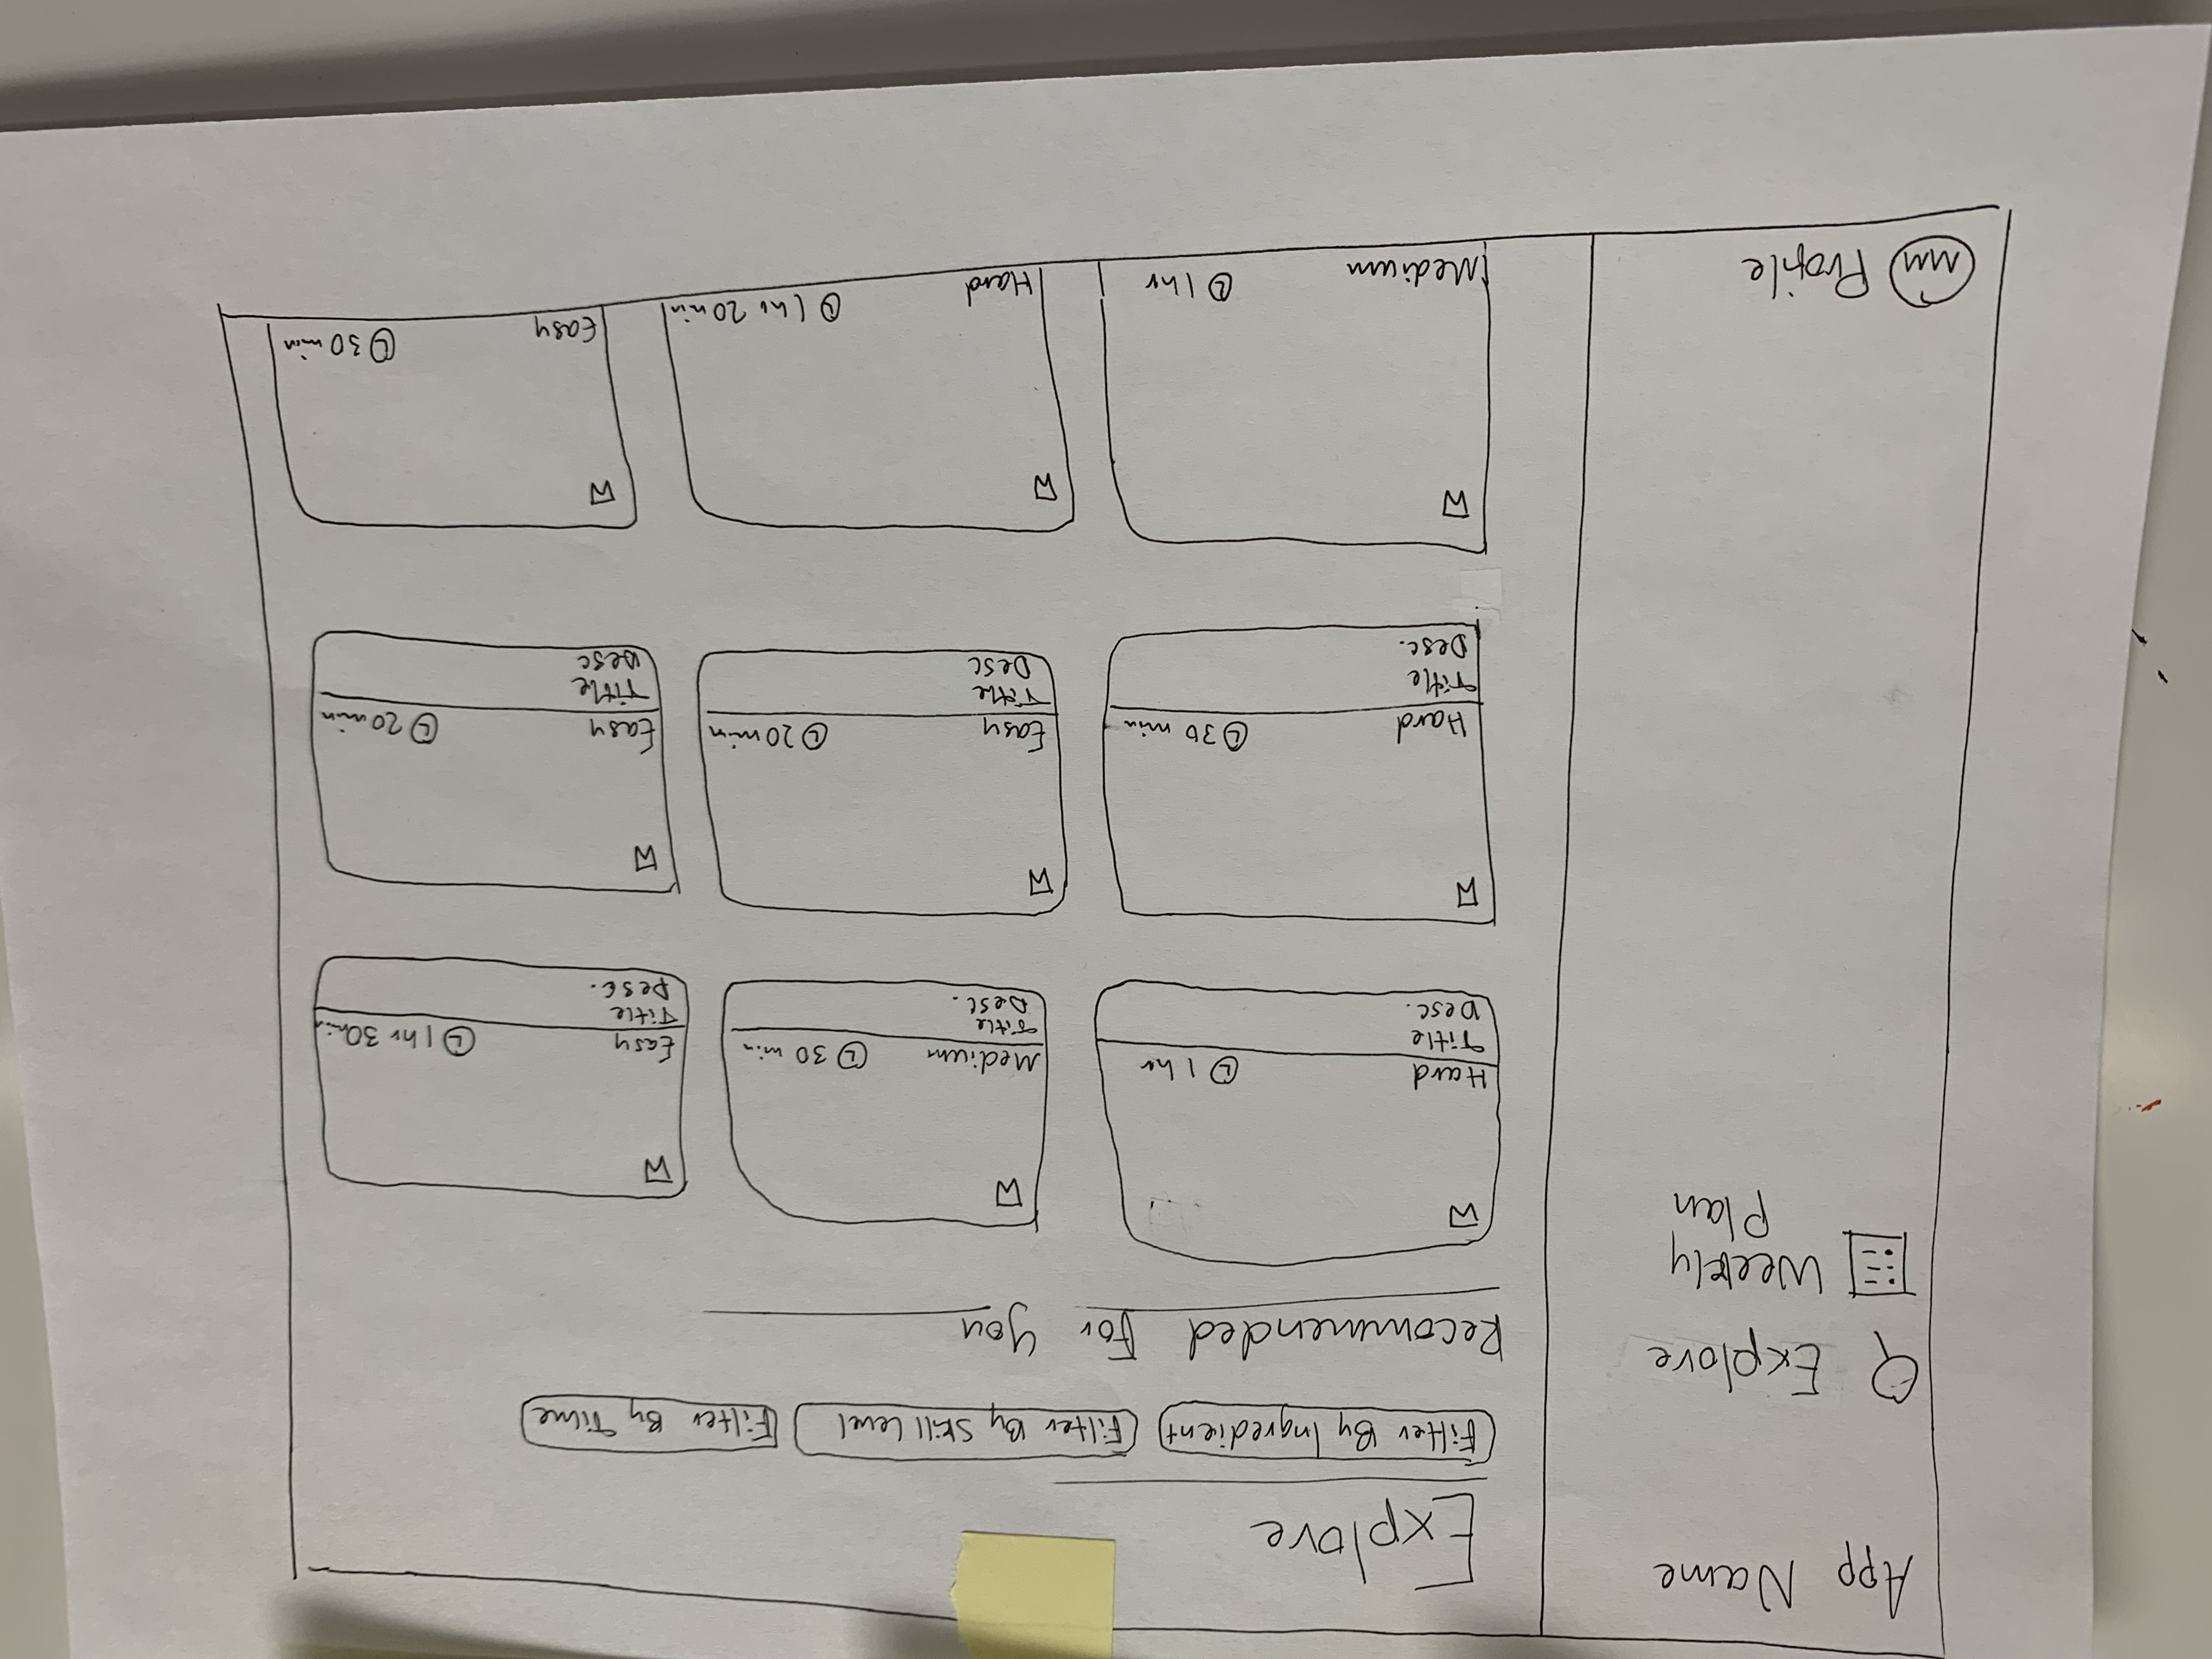 App Name
Explore
Weekly
Plan
Profile
Explore
Filter By Ingredient
Filter By Skill Level
Filter By Time
Recommended For You
Hard 1 hr
Title
Desc.
Medium 30 min
Title
Desc.
Easy 1 hr 30min
Title
Desc.
Hard 30 min
Title
Desc.
Easy 20min
Title
Desc
Easy 20min
Title
Desc
Medium 1hr
Hard 1hr 20min
Easy 30 min